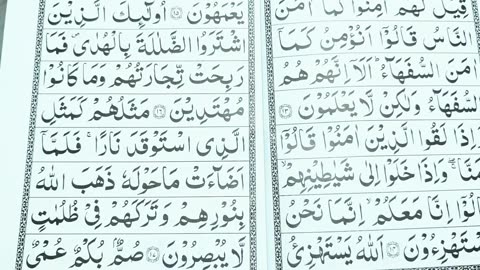 قِيْلَ لَهُمْ اٰمِنُوْا كَمَاۤ اٰمَنَ
النَّاسُ قَالُوْۤا اَنُؤْمِنُ كَمَاۤ
اٰمَنَ السُّفَهَآءُ ؕ اَلَاۤ اِنَّهُمْ هُمُ
السُّفَهَآءُ وَلٰكِنْ لَّا يَعْلَمُوْنَ ۝۱۳
وَاِذَا لَقُوا الَّذِيْنَ اٰمَنُوْا قَالُوْۤا
مَنَّا ۖۚ وَاِذَا خَلَوْا اِلٰى شَيٰطِيْنِهِمْ ۙ
الُوْۤا اِنَّا مَعَكُمْ ۙ اِنَّمَا نَحْنُ
سْتَهْزِءُوْنَ ۝۱۴ اَللّٰهُ يَسْتَهْزِئُ
يَعْمَهُوْنَ ۝۱۵ اُولٰٓئِكَ الَّذِيْنَ
اشْتَرَوُا الضَّلٰلَةَ بِالْهُدٰى ۪ فَمَا
رَبِحَتْ تِّجَارَتُهُمْ وَمَا كَانُوْا
مُهْتَدِيْنَ ۝۱۶ مَثَلُهُمْ كَمَثَلِ
الَّذِى اسْتَوْقَدَ نَارًا ۚ فَلَمَّاۤ
اَضَآءَتْ مَا حَوْلَهٗ ذَهَبَ اللّٰهُ
بِنُوْرِهِمْ وَتَرَكَهُمْ فِىْ ظُلُمٰتٍ
لَّا يُبْصِرُوْنَ ۝۱۷ صُمٌّۢ بُكْمٌ عُمْىٌ